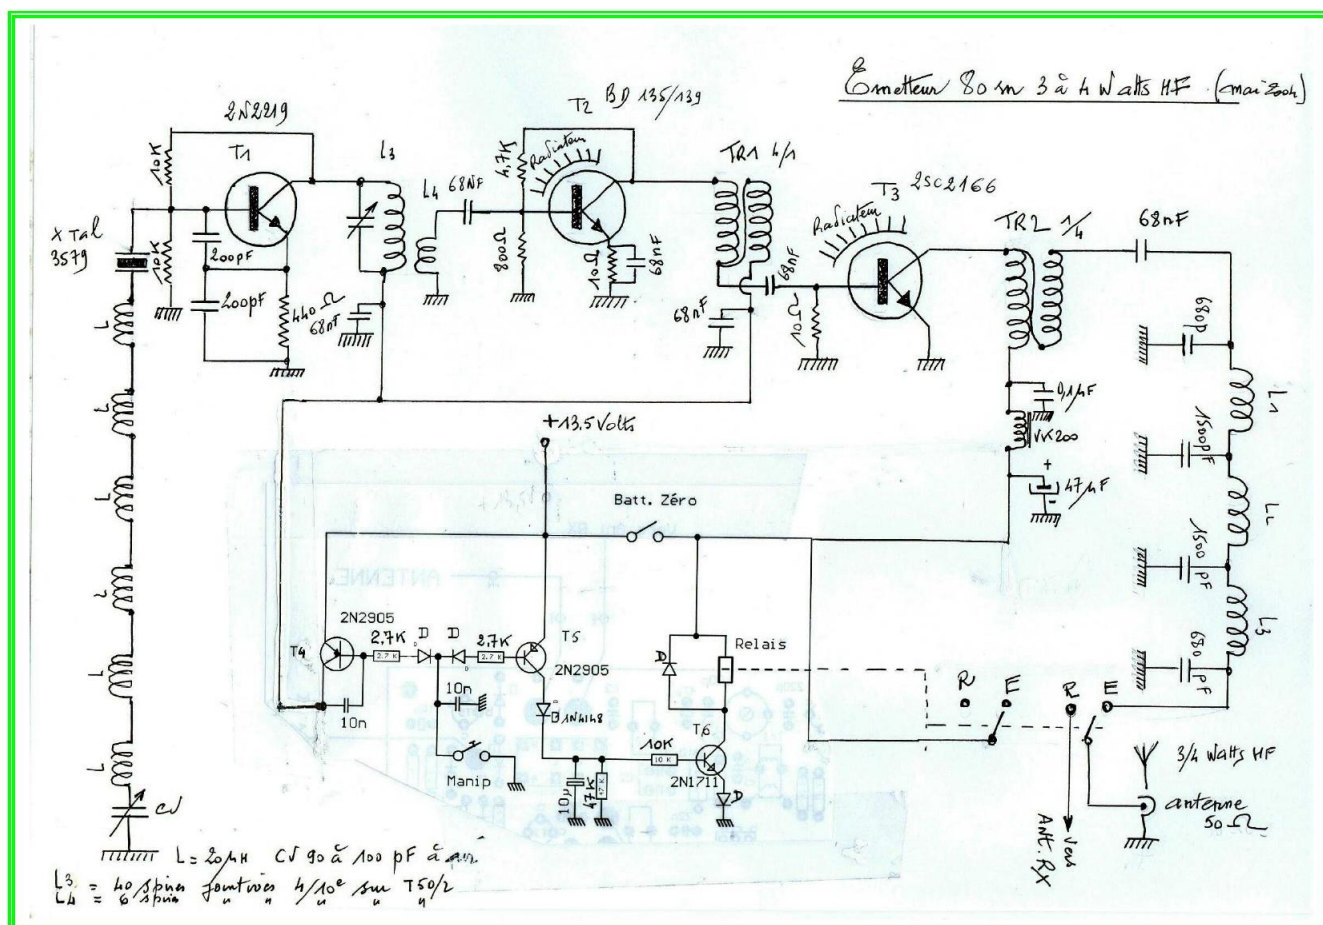 Emetteur 80 m 3 à 4 Watts HF (mai 2004)
2N2219
T1
10K
10K
X Tal
3579
200pF
200pF
440Ω
68nF
L3
L4
68NF
T2
BD 135/139
Radiateur
4,7K
800Ω
10Ω
68nF
TR1 4/1
68nF
68nF
10Ω
T3
2SC2166
Radiateur
TR2 1/4
68nF
680p
L1
1500pF
L2
1500 pF
L3
680 pF
0,1µF
VK200
+
47µF
-
L
L
L
L
L
L
CV
+13,5 Volts
Batt. Zéro
2N2905
T4
2,7K
2.7 K
D
D
2,7K
2.7 K
T5
2N2905
10n
10n
Manip
1N4148
10µ
47K
10K
10 K
T6
2N1711
D
D
Relais
R
E
R
E
3/4 Watts HF
antenne
50Ω
Vers
ANT. RX
ANTENNE
L = 20µH CV 90 à 100 pF à air
L3 = 40 spires jointives 4/10e sur T50/2
L4 = 6 spires " " " " "